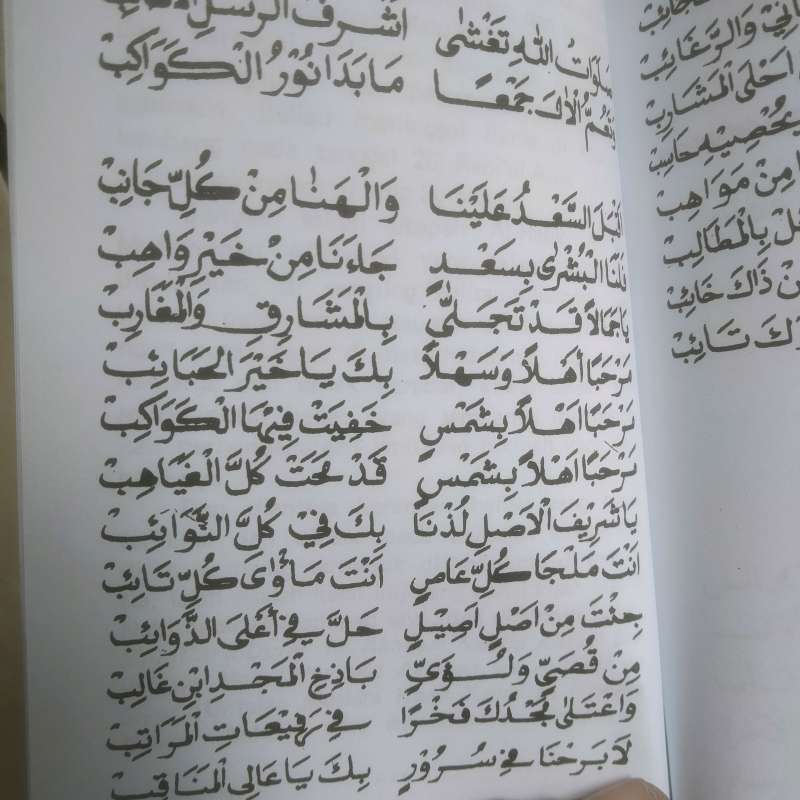 صَلَوَاتُ اللّٰهِ تَغْشٰى اَشْرَفَ الرُّسْلِ
وَتَعُمُّ اْلاٰلَ جَمْعًا مَا بَدَا نُوْرُ الْكَوَاكِبْ
اَقْبَلَ السَّعْدُ عَلَيْنَا وَالْهَنَا مِنْ كُلِّ جَانِبْ
فَلَنَا الْبُشْرٰى بِسَعْدٍ جَاءَنَا مِنْ خَيْرِ وَاهِبْ
يَا جَمَالًا قَدْ تَجَلّٰى بِالْمَشَارِقِ وَالْمَغَارِبْ
مَرْحَبًا اَهْلًا وَسَهْلًا بِكَ يَا خَيْرَ الْحَبَائِبْ
مَرْحَبًا اَهْلًا بِشَمْسٍ خَفِيَتْ فِيْهَا الْكَوَاكِبْ
مَرْحَبًا اَهْلًا بِشَمْسٍ قَدْ مَحَتْ كُلَّ الْغَيَاهِبْ
يَا شَرِيْفَ اْلاَصْلِ لُذْنَا بِكَ فِيْ كُلِّ النَّوَائِبْ
اَنْتَ مَلْجَا كُلِّ عَاصٍ اَنْتَ مَأْوٰى كُلِّ تَائِبْ
جِئْتَ مِنْ اَصْلٍ اَصِيْلٍ حَلَّ فِيْ أَعْلَى الذَّوَائِبْ
مِنْ قُصَيٍّ وَلُؤَيٍّ بَاذِخِ الْمَجْدِ ابْنِ غَالِبْ
وَاعْتَلٰى مَجْدُكَ فَخْرًا فِيْ رَفِيْعَاتِ الْمَرَاتِبْ
لَا بَرِحْنَا فِيْ سُرُوْرٍ بِكَ يَا عَالِى الْمَنَاقِبْ
وَالرَّغَائِبْ
اَحْلَى الْمَشَارِبْ
يُحْصِيْهِ حَاسِبْ
مِنْ مَوَاهِبْ
بِالْمَطَالِبْ
ذَاكَ خَائِبْ
تَائِبْ